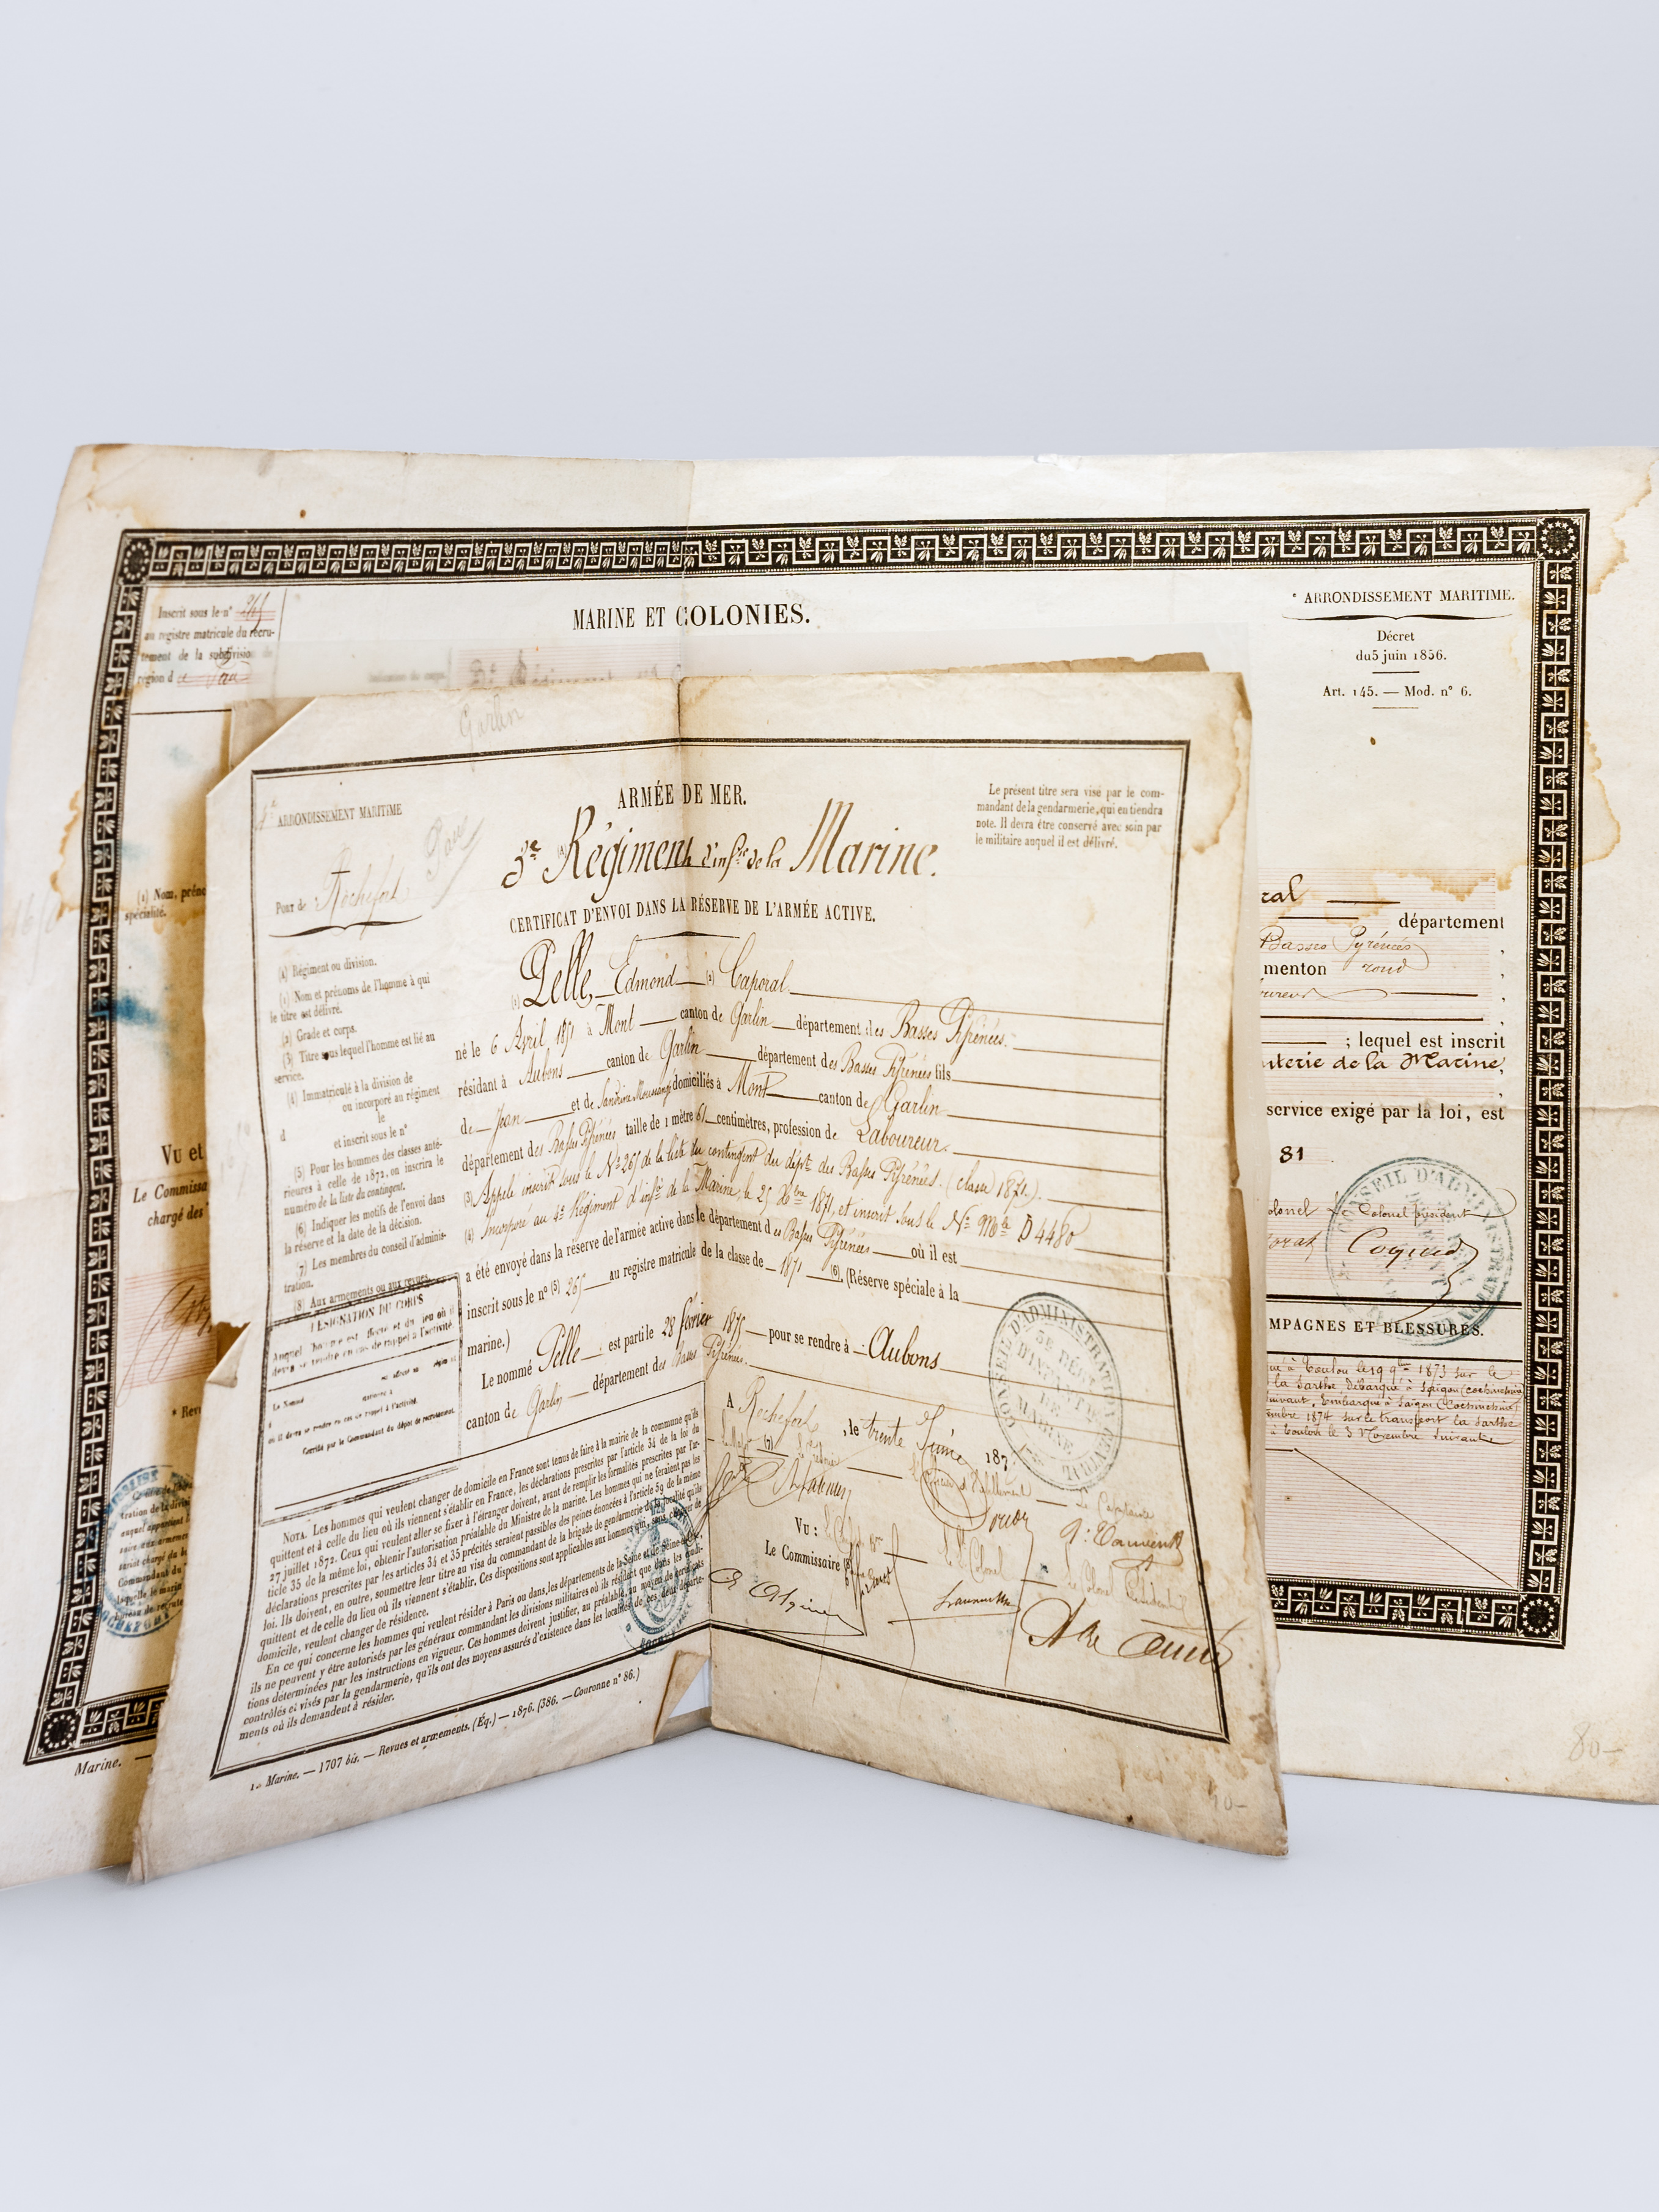 Inscrit sous le n° 265
au registre matricule du recru-
tement de la subdivision de
région d e Pau
MARINE ET COLONIES.
e ARRONDISSEMENT MARITIME.
Décret
du 5 juin 1856.
Art. 145. — Mod. n° 6.
(1) Nom, préno
spécialité.
Vu et
Le Commissa
chargé des
Marine. —
ral
département
Basses Pyrénées
menton rond
; lequel est inscrit
nterie de la Marine,
service exigé par la loi, est
81
olonel Colonel président
CONSEIL D'ADMINIS
MPAGNES ET BLESSURES.
à Toulon le 19 9bre 1873 sur le
la Sarthe débarqué à Saïgon (Cochinchine)
suivant, Embarqué à Saïgon (Cochinchine)
embre 1874 sur le transport la Sarthe
à Toulon le 3 Novembre suivante
80-
Garlin
4e ARRONDISSEMENT MARITIME
Pau
Port de Rochefort
ARMÉE DE MER.
3e Régiment d'infie de la Marine.
Le présent titre sera visé par le com-
mandant de la gendarmerie, qui en tiendra
note. Il devra être conservé avec soin par
le militaire auquel il est délivré.
CERTIFICAT D'ENVOI DANS LA RÉSERVE DE L'ARMÉE ACTIVE.
Régiment ou division.
(1) Nom et prénoms de l'homme à qui
le titre est délivré.
(2) Grade et corps.
(3) Titre sous lequel l'homme est lié au
service.
(4) Immatriculé à la division de
ou incorporé au régiment
d le
et inscrit sous le n°
(5) Pour les hommes des classes anté-
rieures à celle de 1872, on inscrira le
numéro de la liste du contingent.
(6) Indiquer les motifs de l'envoi dans
la réserve et la date de la décision.
(7) Les membres du conseil d'adminis-
tration.
(8) Aux armements ou aux revues.
DÉSIGNATION DU CORPS
Pelle, Edmond (2) Caporal
né le 6 Avril 1851 à Mont canton de Garlin département des Basses Pyrénées.
résidant à Aubons canton de Garlin département des Basses Pyrénées fils
de Jean et de domiciliés à Mont canton de Garlin
département des Basses Pyrénées taille de 1 mètre 61 centimètres, profession de Laboureur.
(3) Appelé inscrit sous le N° 265 de la liste du contingent du dépt des Basses Pyrénées. (classe 1871.)
(4) Incorporé au 4e Régiment d'infie de la Marine, le 25 Xbre 1871, et inscrit sous le N° Mle D 4480
a été envoyé dans la réserve de l'armée active dans le département des Basses Pyrénées où il est
inscrit sous le n° (5) 265 au registre matricule de la classe de 1871 (6). (Réserve spéciale à la
marine.)
Le nommé Pelle est parti le 28 février 1875 pour se rendre à Aubons
canton de Garlin département des Basses Pyrénées.
A Rochefort, le trente Juin 187
CONSEIL D'ADMINISTRATION CENTRAL
3e RÉGT
D'INFANTERIE
DE
MARINE
Vu :
Le Commissaire (8)
NOTA. Les hommes qui veulent changer de domicile en France sont tenus de faire à la mairie de la commune qu'ils
quittent et à celle du lieu où ils viennent s'établir en France, les déclarations prescrites par l'article 34 de la loi du
27 juillet 1872. Ceux qui veulent aller se fixer à l'étranger doivent, avant de remplir les formalités prescrites par l'ar-
ticle 35 de la même loi, obtenir l'autorisation préalable du Ministre de la marine. Les hommes qui ne feraient pas les
déclarations prescrites par les articles 34 et 35 précités seraient passibles des peines énoncées à l'article 59 de la même
loi. Ils doivent, en outre, soumettre leur titre au visa du commandant de la brigade de gendarmerie de la localité qu'ils
quittent et de celle du lieu où ils viennent s'établir. Ces dispositions sont applicables aux hommes qui, sans changer de
domicile, veulent changer de résidence.
En ce qui concerne les hommes qui veulent résider à Paris ou dans les départements de la Seine et de Seine-et-Oise,
ils ne peuvent y être autorisés par les généraux commandant les divisions militaires où ils résident que dans les condi-
tions déterminées par les instructions en vigueur. Ces hommes doivent justifier, au préalable, au moyen de certificats
contrôlés et visés par la gendarmerie, qu'ils ont des moyens assurés d'existence dans les localités de ces deux départe-
ments où ils demandent à résider.
Marine. — 1707 bis. — Revues et armements. (Éq.) — 1876. (386. — Couronne n° 86.)